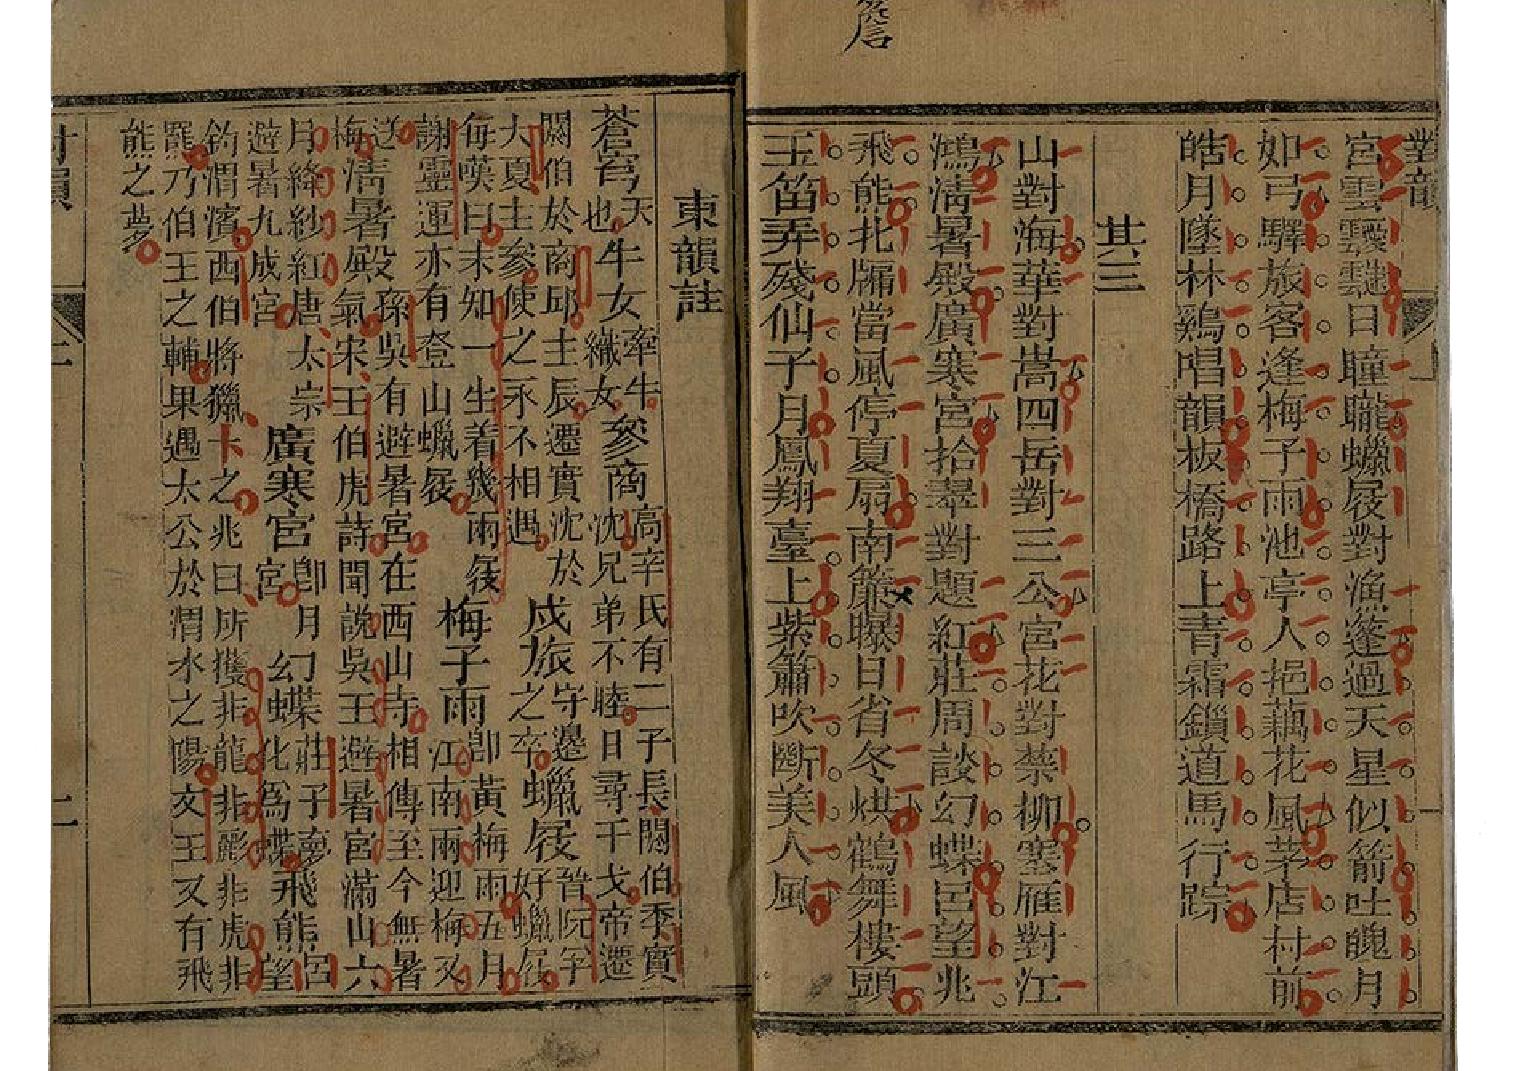 簷
對韻
宮雲靉靆日曈曨蠟屐對漁篷過天星似箭吐魄月
如弓驛旅客逢梅子雨池亭人挹藕花風茅店村前
皓月墜林鷄唱韻板橋路上青霜鎖道馬行踪
其三
山對海華對嵩四岳對三公宮花對禁柳塞雁對江
鴻清暑殿廣寒宮拾翠對題紅莊周談幻蝶呂望兆
飛熊北牖當風停夏扇南簷曝日省冬烘鶴舞樓頭
玉笛弄殘仙子月鳳翔臺上紫簫吹斷美人風
東韻註
蒼穹天也牛女牽牛織女參商高辛氏有二子長閼伯季實沈兄弟不睦日尋干戈帝遷
閼伯於商邱主辰遷實沈於大夏主參使之永不相遇戍旅守邊之卒蠟屐晉阮孚好蠟屐
每嘆曰未知一生着幾兩屐謝靈運亦有登山蠟屐梅子雨即黃梅雨五月江南雨迎梅又
送梅清暑殿孫吳有避暑宮在西山寺相傳至今無暑氣宋王伯虎詩聞說吳王避暑宮滿山六
月絳紗紅唐太宗避暑九成宮廣寒宮即月宮幻蝶莊子夢化為蝶飛熊呂望
釣渭濱西伯將獵卜之兆曰所獲非龍非彲非虎非羆乃伯王之輔果遇太公於渭水之陽文王又有飛
熊之夢
對韻
二